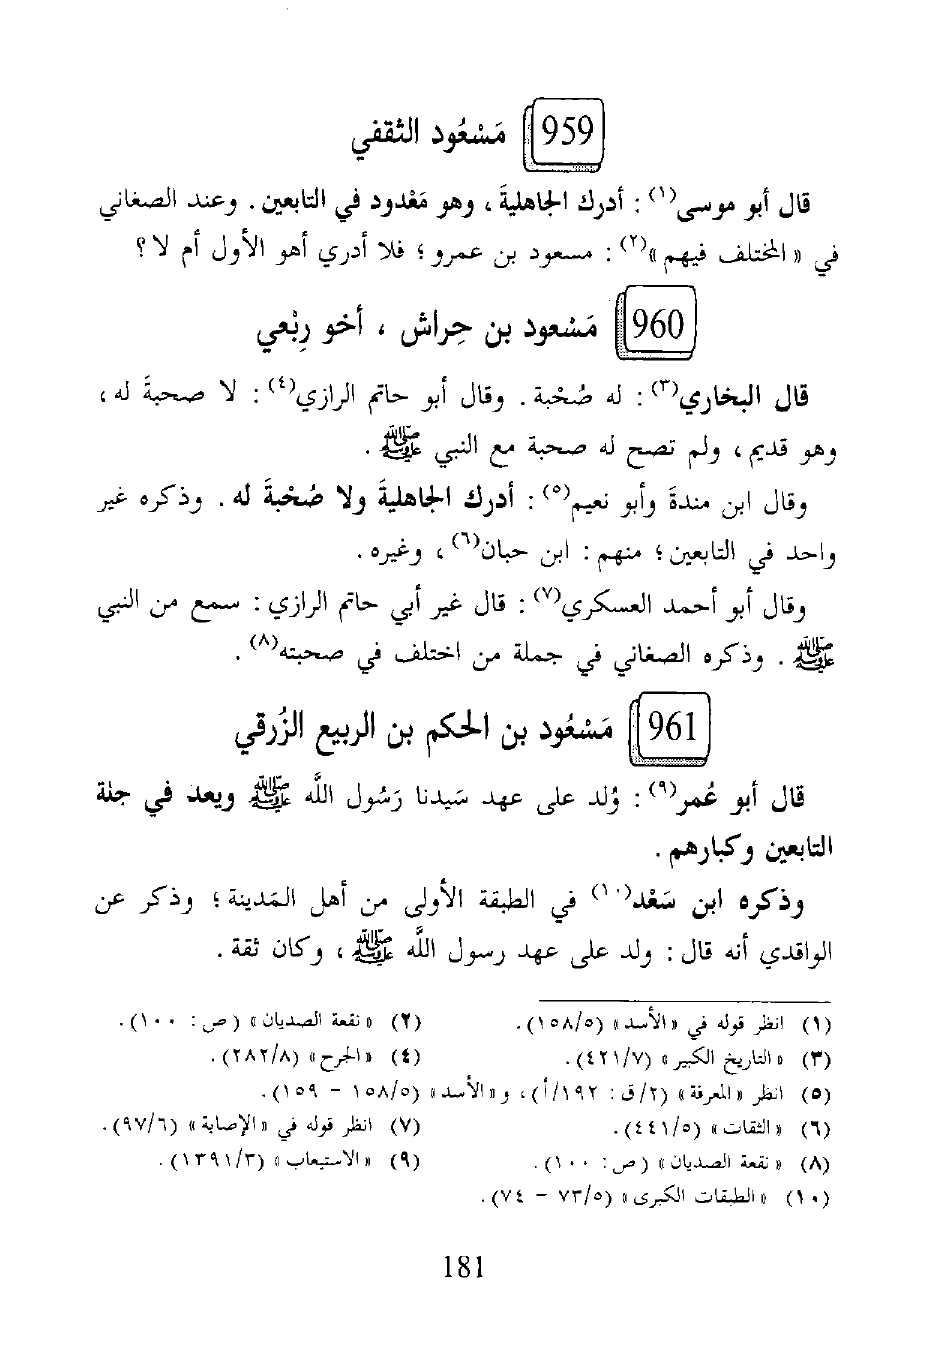 959 مَسْعُود الثقفي
قال أبو موسى(١) : أدرك الجاهليةَ ، وهو مَعْدود في التابعين . وعند الصغاني
في « المختلف فيهم »(٢) : مسعود بن عمرو ؛ فلا أدري أهو الأول أم لا ؟
960 مَسْعود بن حِراش ، أخو رِبْعي
قال البخاري(٣) : له صُحْبة . وقال أبو حاتم الرازي(٤) : لا صحبةَ له ،
وهو قديم ، ولم تصح له صحبة مع النبي ﷺ .
وقال ابن مندةَ وأبو نعيم(٥) : أدرك الجاهليةَ ولا صُحْبةَ له . وذكره غير
واحد في التابعين ؛ منهم : ابن حبان(٦) ، وغيره .
وقال أبو أحمد العسكري(٧) : قال غير أبي حاتم الرازي : سمع من النبي
ﷺ . وذكره الصغاني في جملة من اختلف في صحبته(٨) .
961 مَسْعُود بن الحكم بن الربيع الزُرقي
قال أبو عُمر(٩) : وُلد على عهد سَيدنا رَسُول اللَّه ﷺ ويعد في جلة
التابعين وكبارهم .
وذكره ابن سَعْد(١٠) في الطبقة الأولى من أهل المَدينة ؛ وذكر عن
الواقدي أنه قال : ولد على عهد رسول اللَّه ﷺ ، وكان ثقة .
(١) انظر قوله في « الأسد » (٥/ ١٥٨) .
(٢) « نقعة الصديان » ( ص : ١٠٠) .
(٣) « التاريخ الكبير » (٧/ ٤٢١) .
(٤) « الجرح » (٨/ ٢٨٢) .
(٥) انظر « المعرفة » (٢/ ق : ١٩٢/ أ) ، و « الأسد » (٥/ ١٥٨ - ١٥٩) .
(٦) « الثقات » (٥/ ٤٤١) .
(٧) انظر قوله في « الإصابة » (٦/ ٩٧) .
(٨) « نقعة الصديان » ( ص : ١٠٠) .
(٩) « الاستيعاب » (٣/ ١٣٩١) .
(١٠) « الطبقات الكبرى » (٥/ ٧٣ - ٧٤) .
181